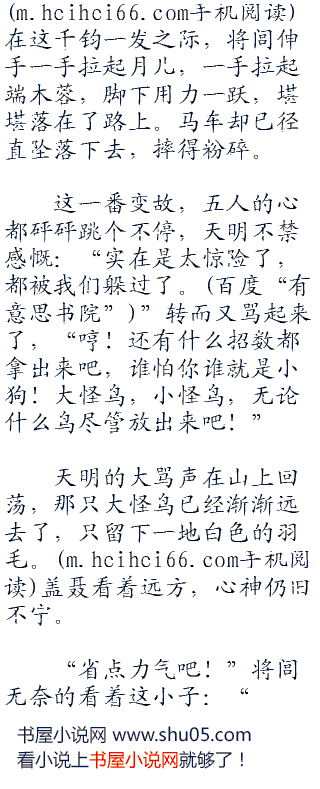 (m.hcihci66.com手机阅读)
在这千钧一发之际，将闾伸
手一手拉起月儿，一手拉起
端木蓉，脚下用力一跃，堪
堪落在了路上。马车却已径
直坠落下去，摔得粉碎。
这一番变故，五人的心
都砰砰跳个不停，天明不禁
感慨：“实在是太惊险了，
都被我们躲过了。(百度“有
意思书院”)”转而又骂起来
了，“哼！还有什么招数都
拿出来吧，谁怕你谁就是小
狗！大怪鸟，小怪鸟，无论
什么鸟尽管放出来吧！”
天明的大骂声在山上回
荡，那只大怪鸟已经渐渐远
去了，只留下一地白色的羽
毛。(m.hcihci66.com手机阅
读)盖聂看着远方，心神仍旧
不宁。
“省点力气吧！”将闾
无奈的看着这小子：“
书屋小说网 www.shu05.com
看小说上书屋小说网就够了！